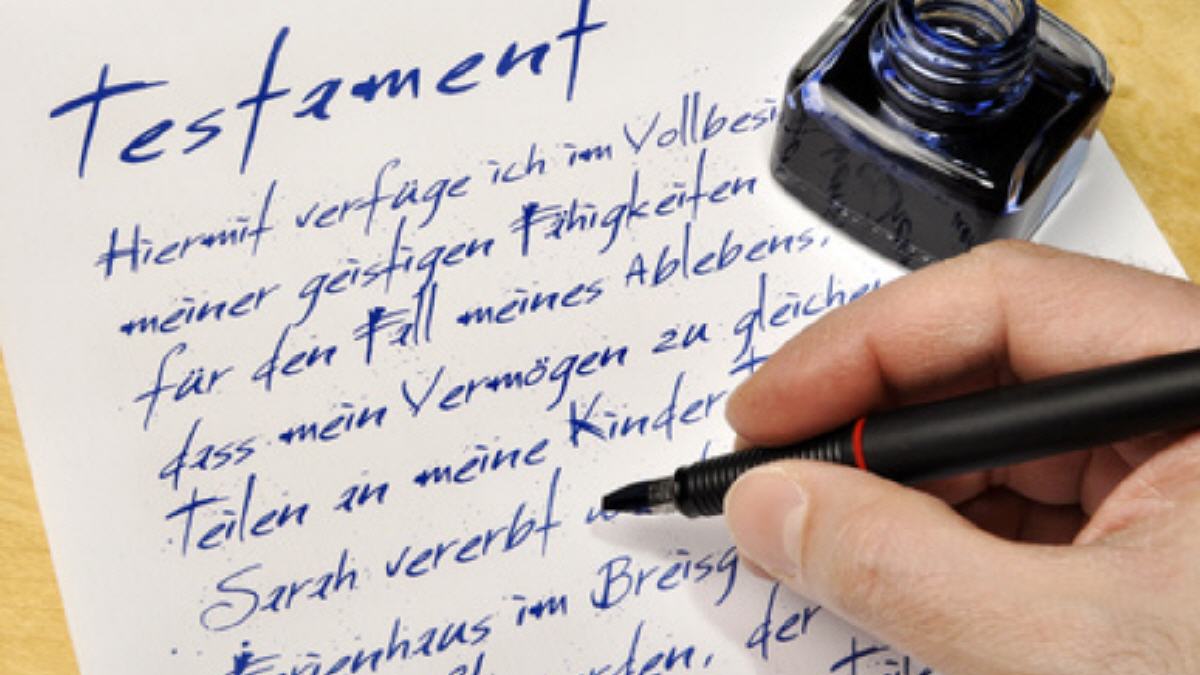 Testament
Hiermit verfüge ich im Vollbesitz
meiner geistigen Fähigkeiten
für den Fall meines Ablebens,
dass mein Vermögen zu gleichen
Teilen an meine Kinder
Sarah vererbt
Ferienhaus im Breisg
der